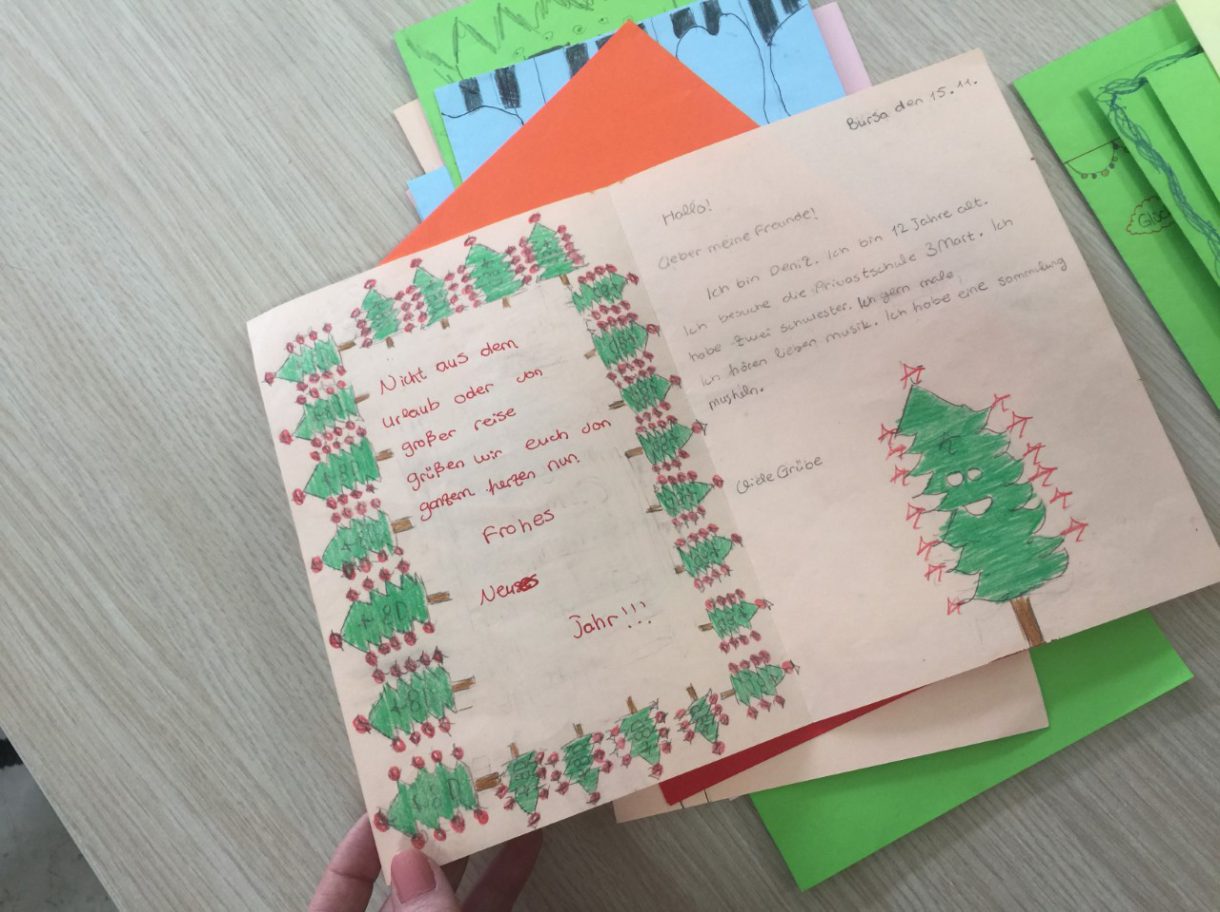 Nicht aus dem
urlaub oder von
großer reise
grüßen wir euch don
ganzem herzen nun
Frohes
Neues
Jahr!!!
Bursa den 15.11.
Hallo!
Lieber meine Freunde!
Ich bin Deniz. Ich bin 12 Jahre alt.
Ich besuche die Privastschule 3 Mart. Ich
habe zwei schwester. Ich gern male,
Ich hören lieben musik. Ich habe eine sammlung
musheln.
Viele Grübe